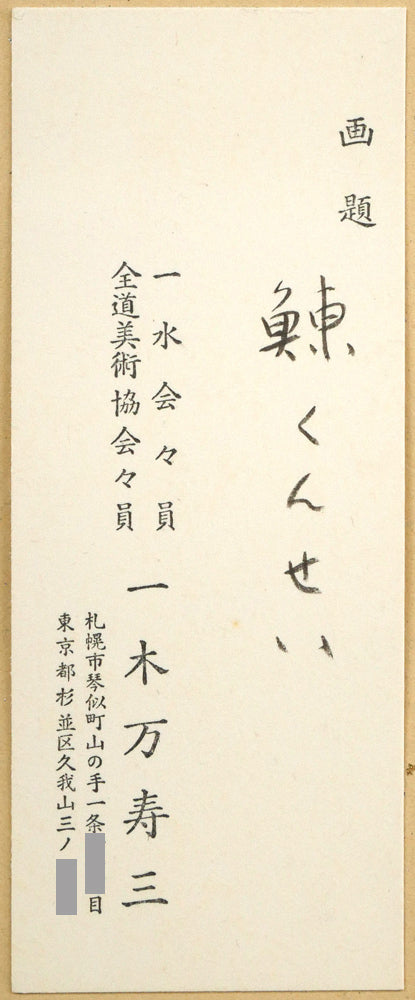 画題
鰊くんせい
一水会々員
全道美術協会々員
一木万寿三
札幌市琴似町山の手一条目
東京都杉並区久我山三ノ